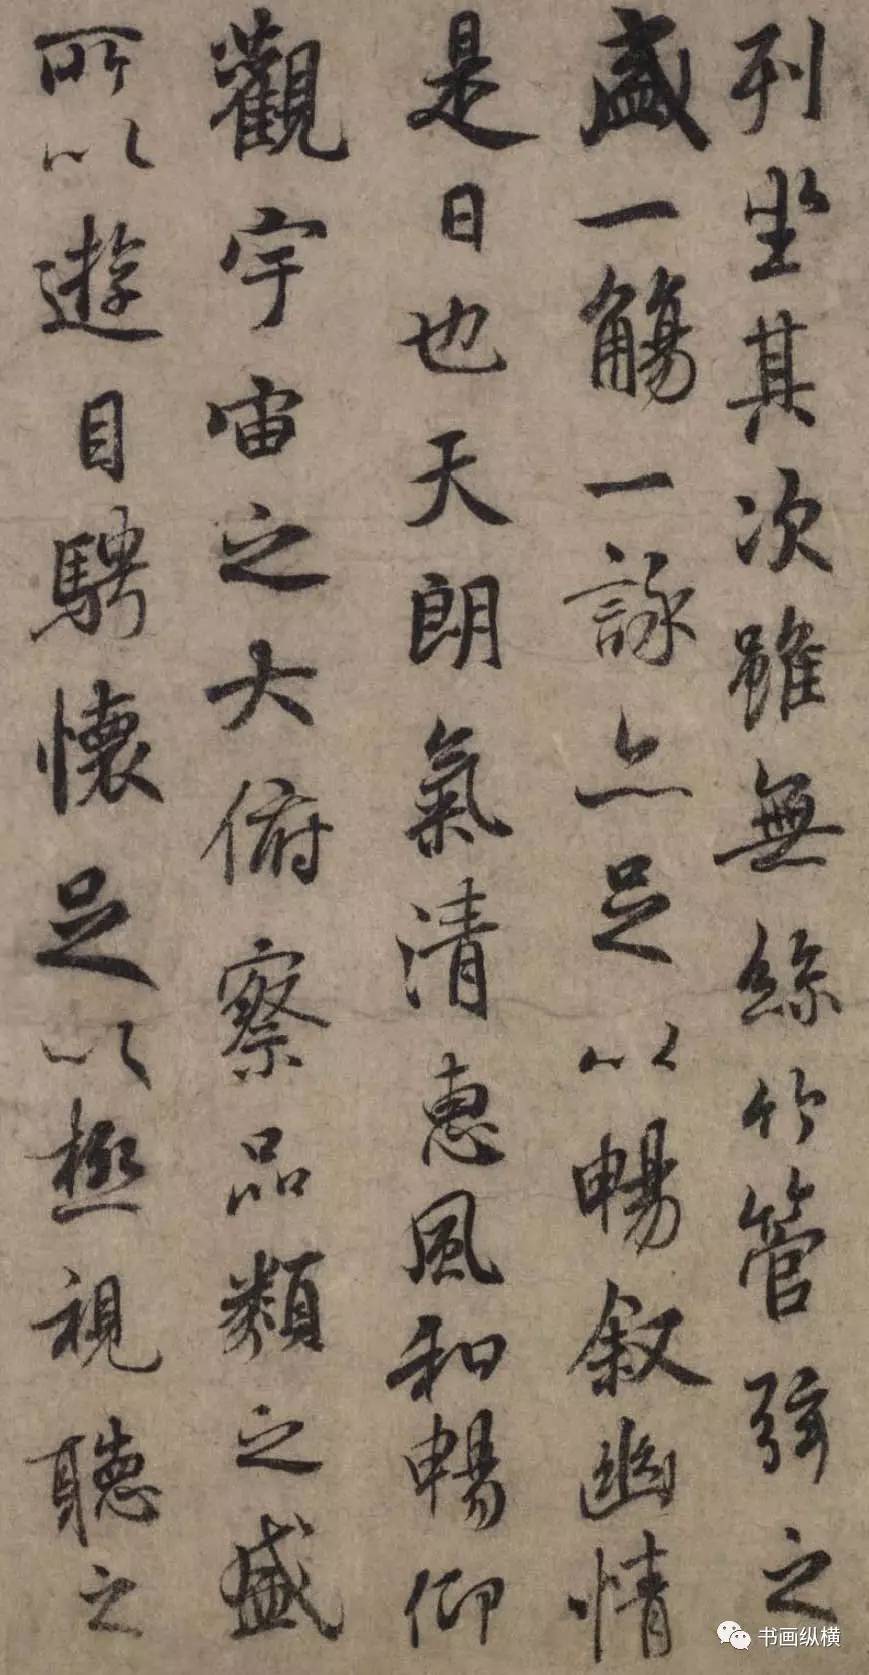 列坐其次雖無絲竹管弦之
盛一觴一詠亦足以暢叙幽情
是日也天朗氣清惠風和暢仰
觀宇宙之大俯察品類之盛
所以遊目騁懷足以極視聽之
书画纵横